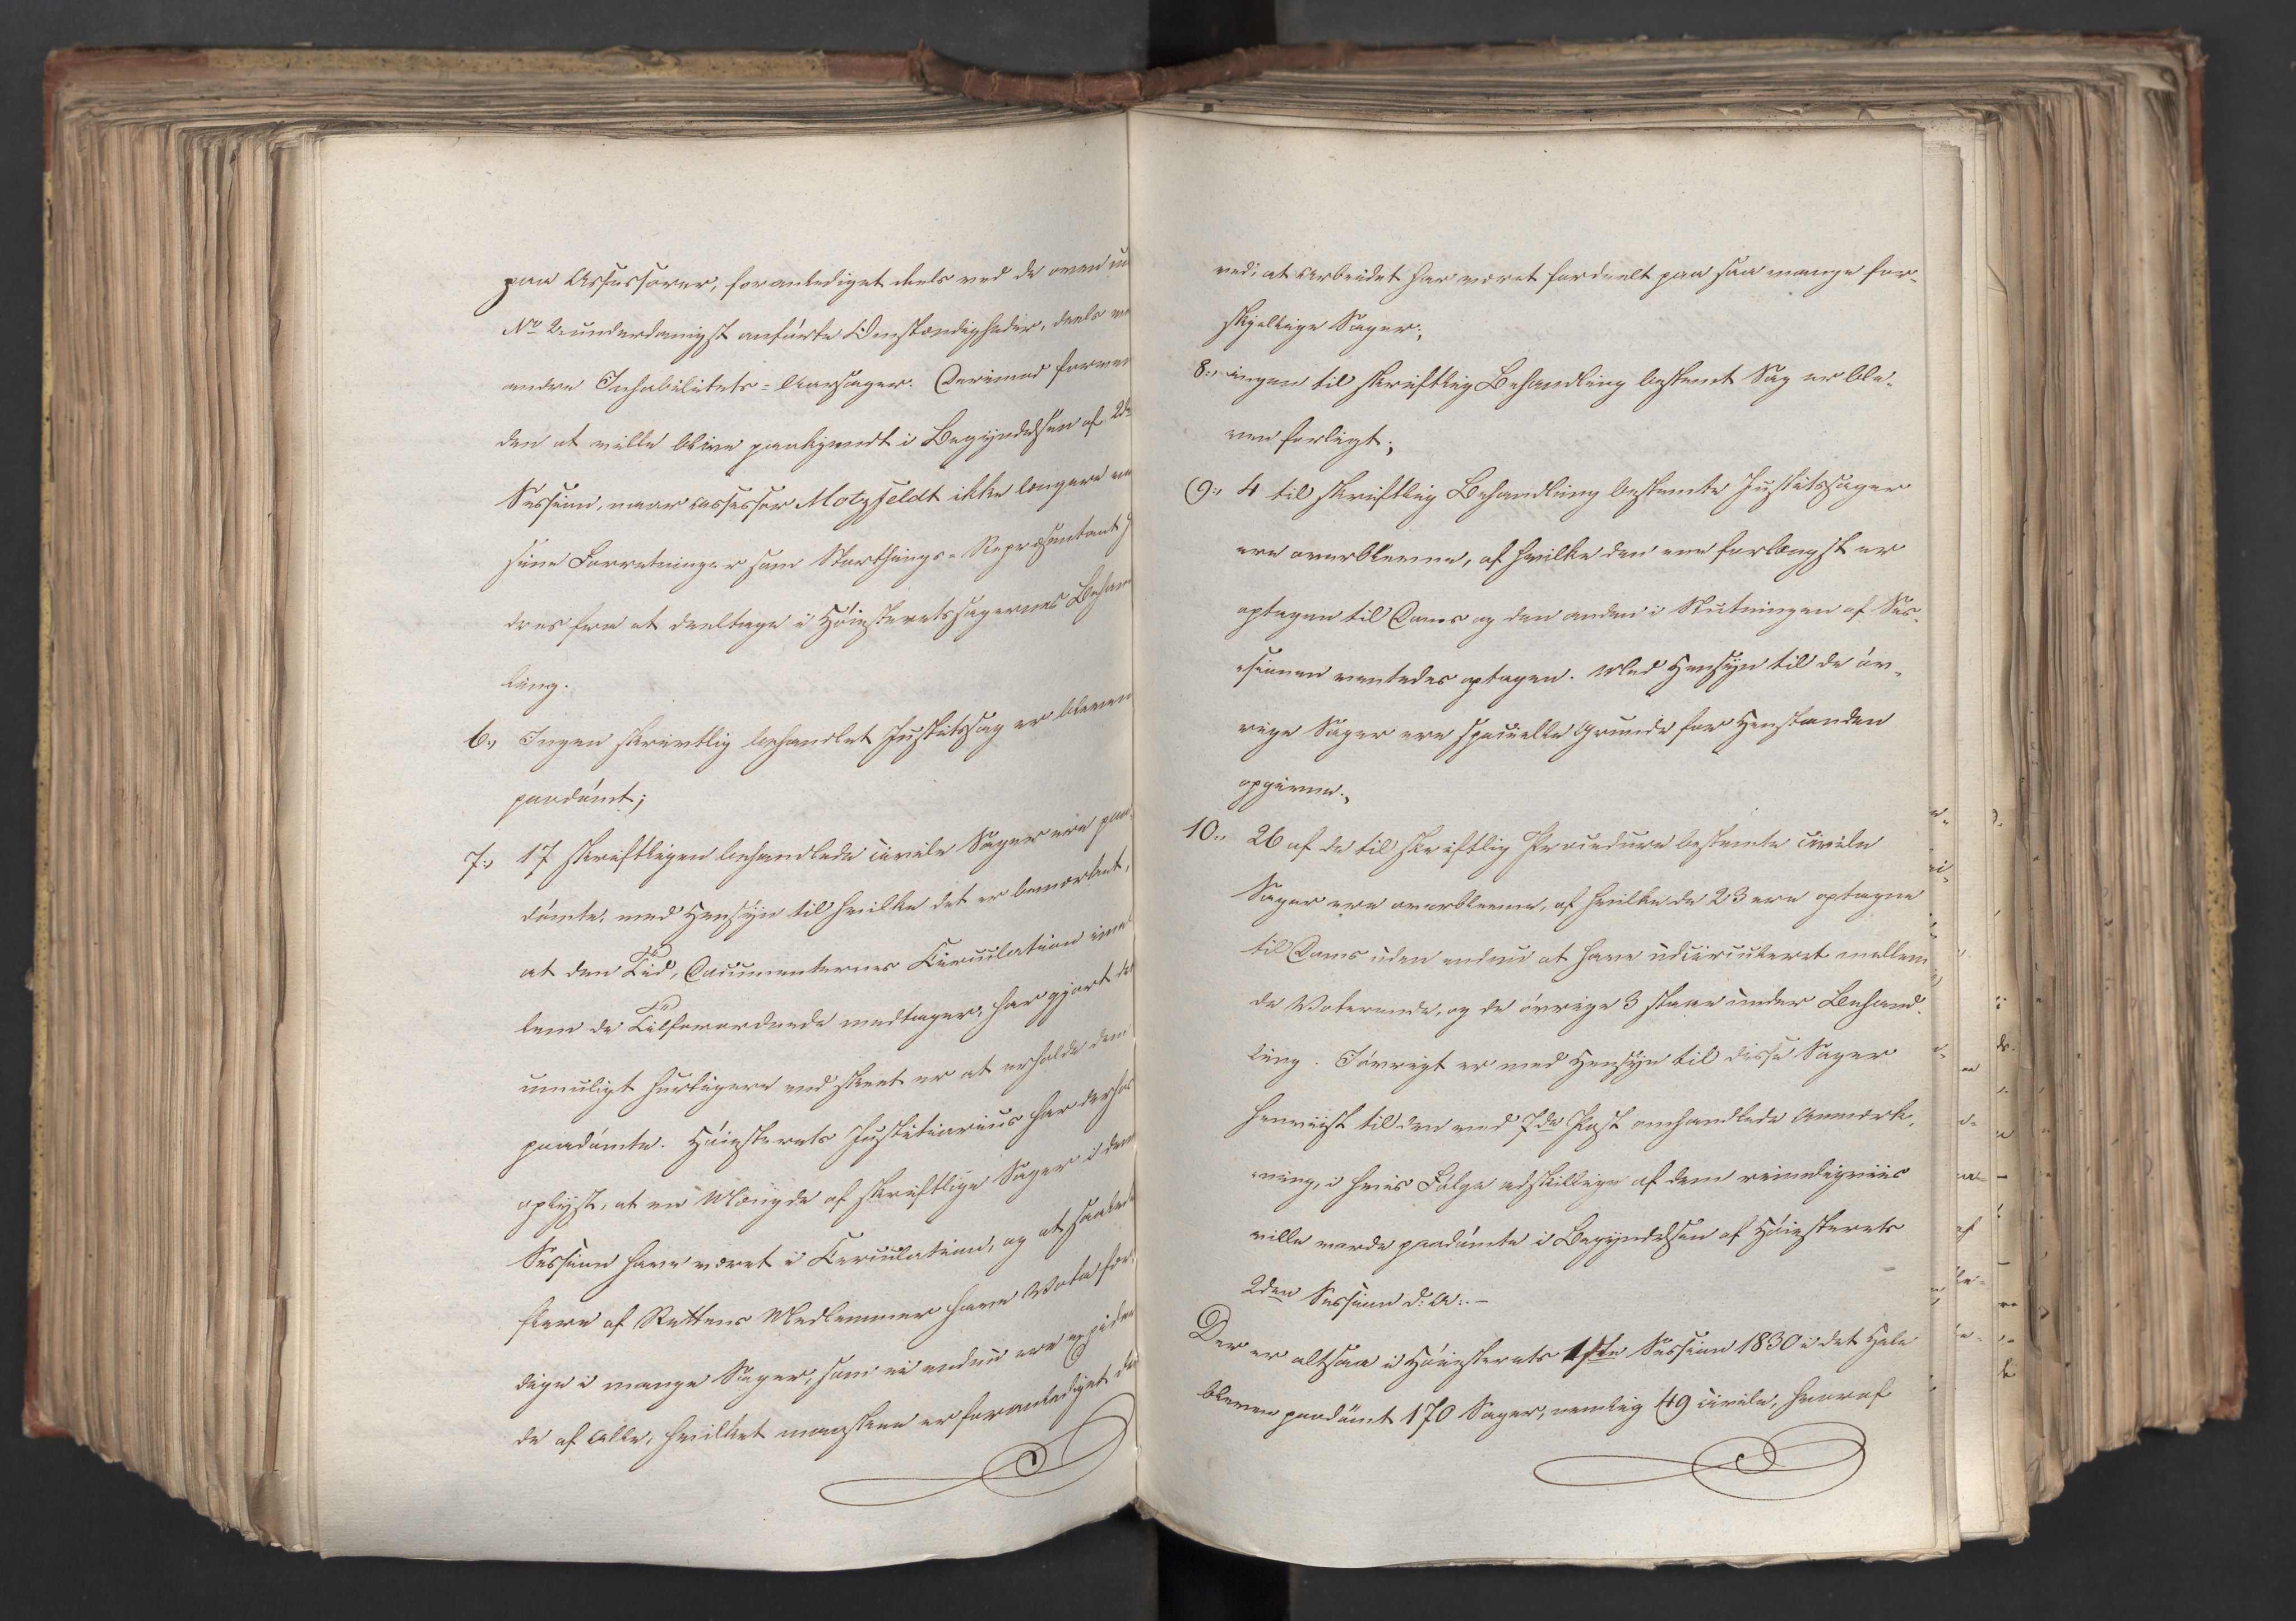 paa Assessorer, foranlediget deels ved de oven u
No 2. underdanigst anførte Omstændigheder, deels ve
andre Inhabilitets=Aarsager. Derimod forme
den at ville blive paakjendt i Begyndelsen af 2de
Session, naar Assessor Motzfeldt ikke længere ve
sine Forretninger som Storthings=Repræsentant h
dres fra at deeltage i Høiesteretssagernes Behan
ling.
6., Ingen skrivtlig behandlet Justitssag er bleven
paadømt;
7., 17 skriftligen behandlede civile Sager ere paa
dømte, med Hensyn til hvilke det er bemærket,
at den Tid, Documenternes Circulation imel
lem de Tilforordnede medtager, har gjort det
umuligt hurtigere end skeet er at erholde dem
paadømte. Høiesterets Justitiarius har derhos
oplyst, at en Mængde af skriftlige Sager i den
Session have været i Circulation, og at saavel
flere af Rettens Medlemmer have Vota fær-
dige i mange Sager, som ei endnu ere expede
de af Alle, hvilket maaskee er foranlediget de
ved, at Arbeidet har været fordeelt paa saa mange for-
skjellige Sager;
8., ingen til skriftlig Behandling bestemt Sag er ble-
ven forligt;
9., 4 til skriftlig Behandling bestemte Justitssager
ere overblevne, af hvilke den ene forlængst er
optagen til Doms og den anden i Slutningen af Ses-
sionen ventedes optagen. Med Hensyn til de øv-
rige Sager ere specielle Grunde for Henstanden
opgivne.,
10., 26 af de til skriftlig Procedure bestemte civile
Sager ere overblevne, af hvilke de 23 ere optagne
til Doms uden endnu at have udcirculeret mellem
de Voterende, og de øvrige 3 staae under Behand-
ling. Iøvrigt er med Hensyn til disse Sager
henviist til den ved 7de Post omhandlede Anmærk-
ning, i hvis Følge adskillige af dem rimeligviis
ville vorde paadømte i Begyndelsen af Høiesterets
2den Session d: A:.-
Der er altsaa i Høiesterets 1ste Session 1830 i det Hele
bleven paadømt 170 Sager, nemlig 49 civile, hvoraf